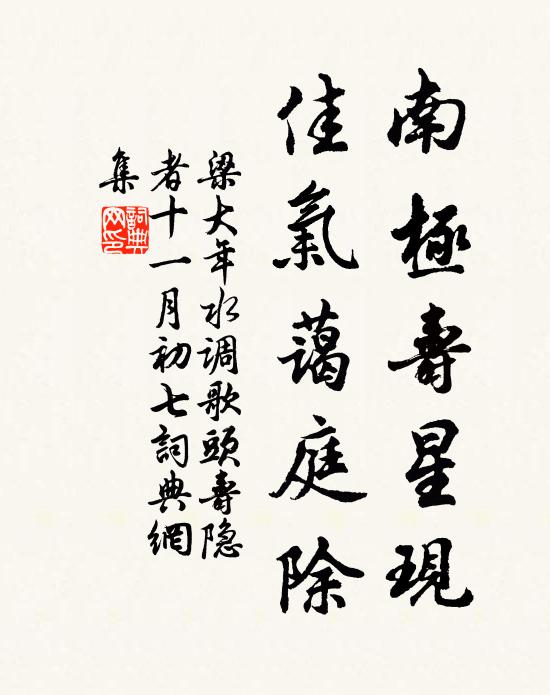 南極壽星現
佳氣藹庭除
梁大年水调歌頭壽隐
者十一月初七詞典網
集
詞典網印